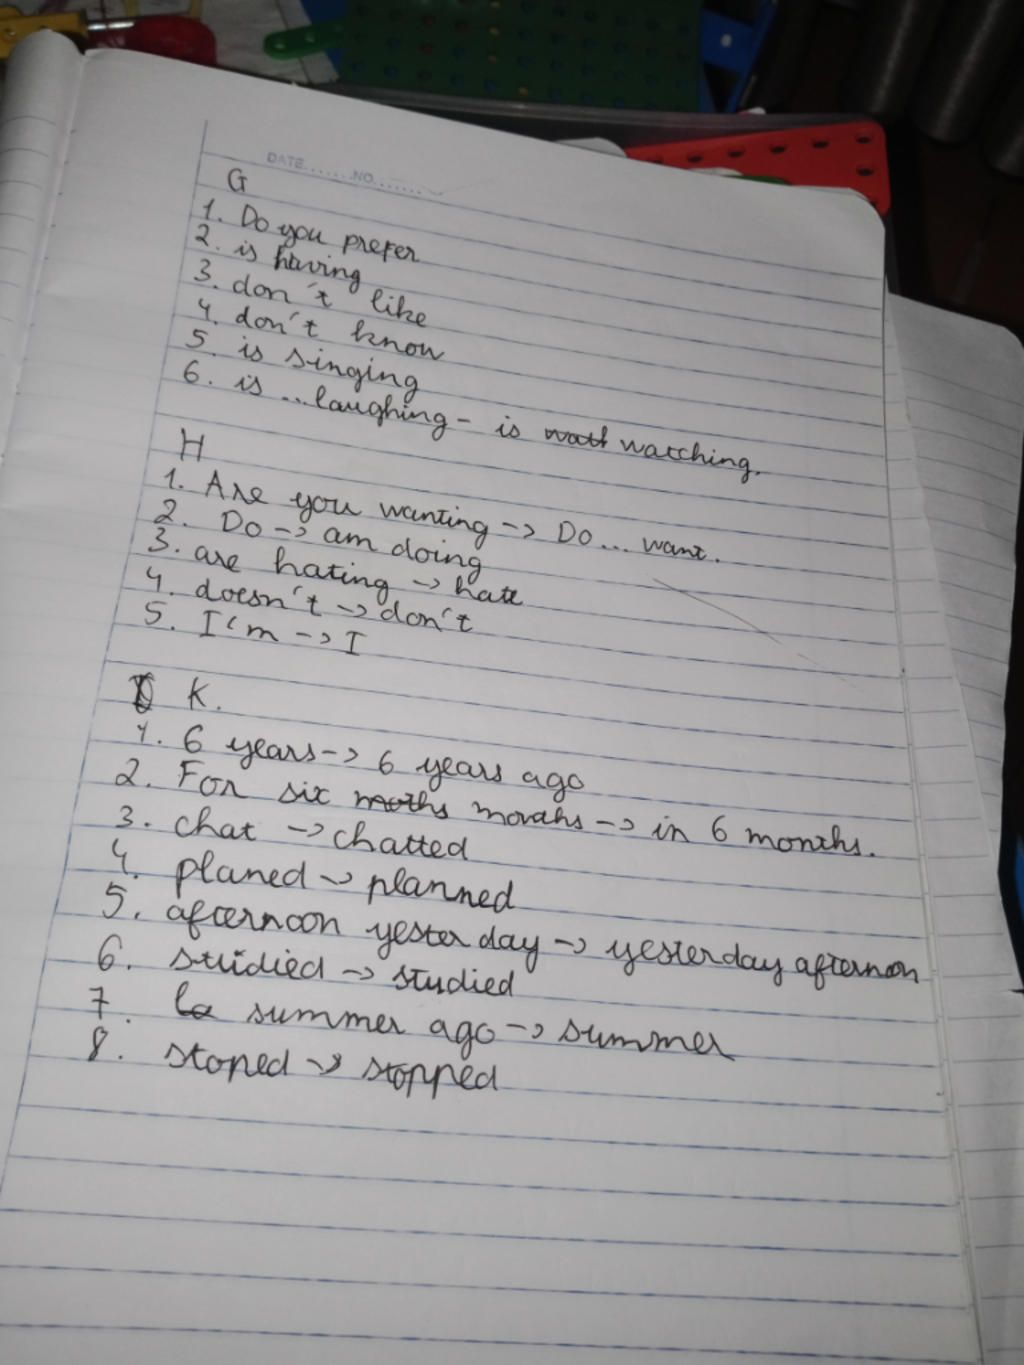 DATE.......NO.......
G
1. Do you prefer
2. is having
3. don't like
4. don't know
5. is singing
6. is ... laughing - is watching.
H
1. Are you wanting -> Do... want.
2. Do -> am doing
3. are hating -> hate
4. doesn't -> don't
5. I'm -> I
K.
1. 6 years -> 6 years ago
2. For six months -> in 6 months.
3. chat -> chatted
4. planed -> planned
5. afternoon yesterday -> yesterday afternoon
6. studied -> studied
7. summer ago -> summer
8. stoped -> stopped